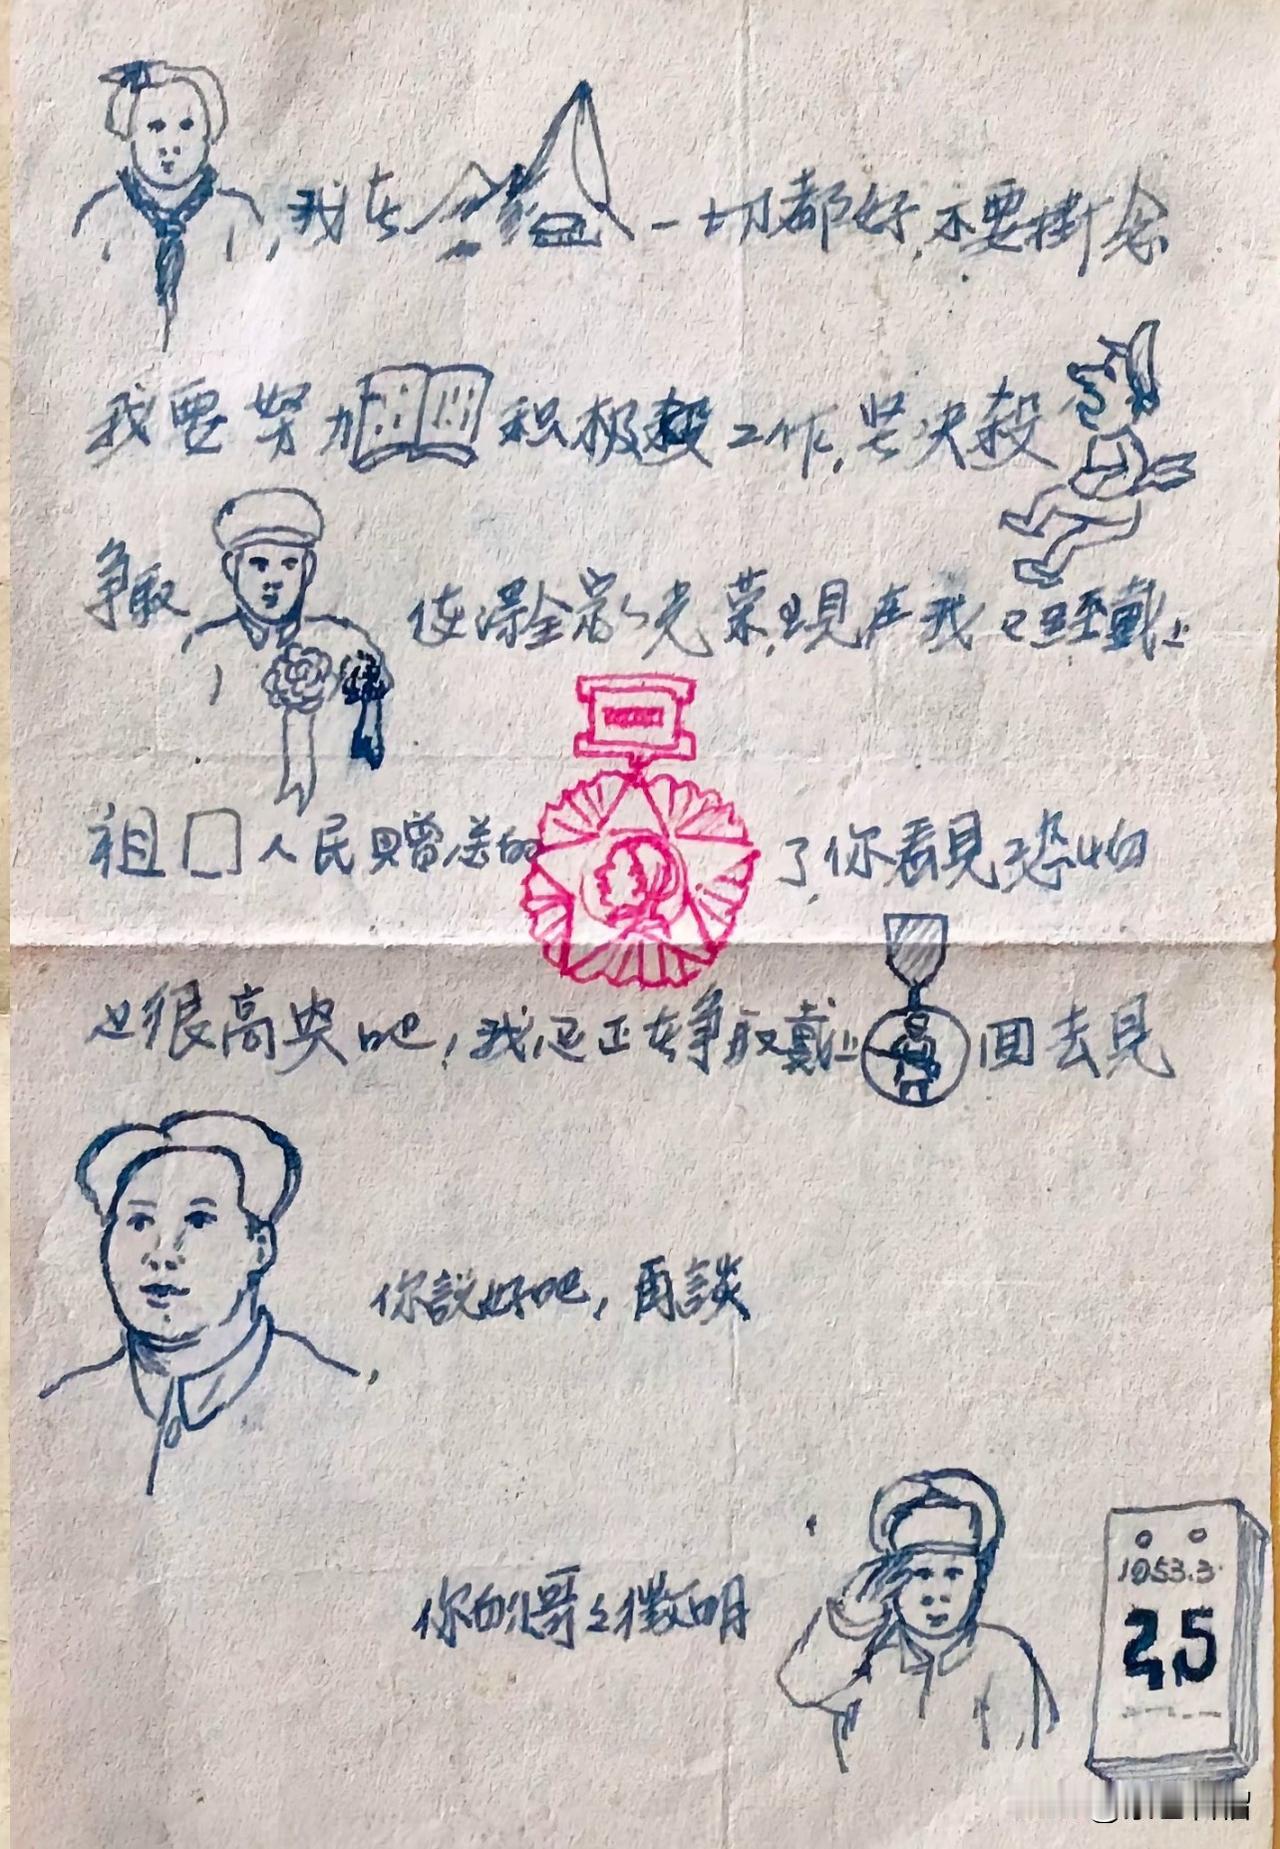 ，我在一切都好，不要掛念
我要努力积极工作，坚决殺
争取使得全家光荣，現在我已经戴上
祖囗人民贈送的了，你看見恐怕
也很高兴吧！我还正在争取戴上回去見
，你說好吧，再談
你的哥々徵明
1953.3.
25